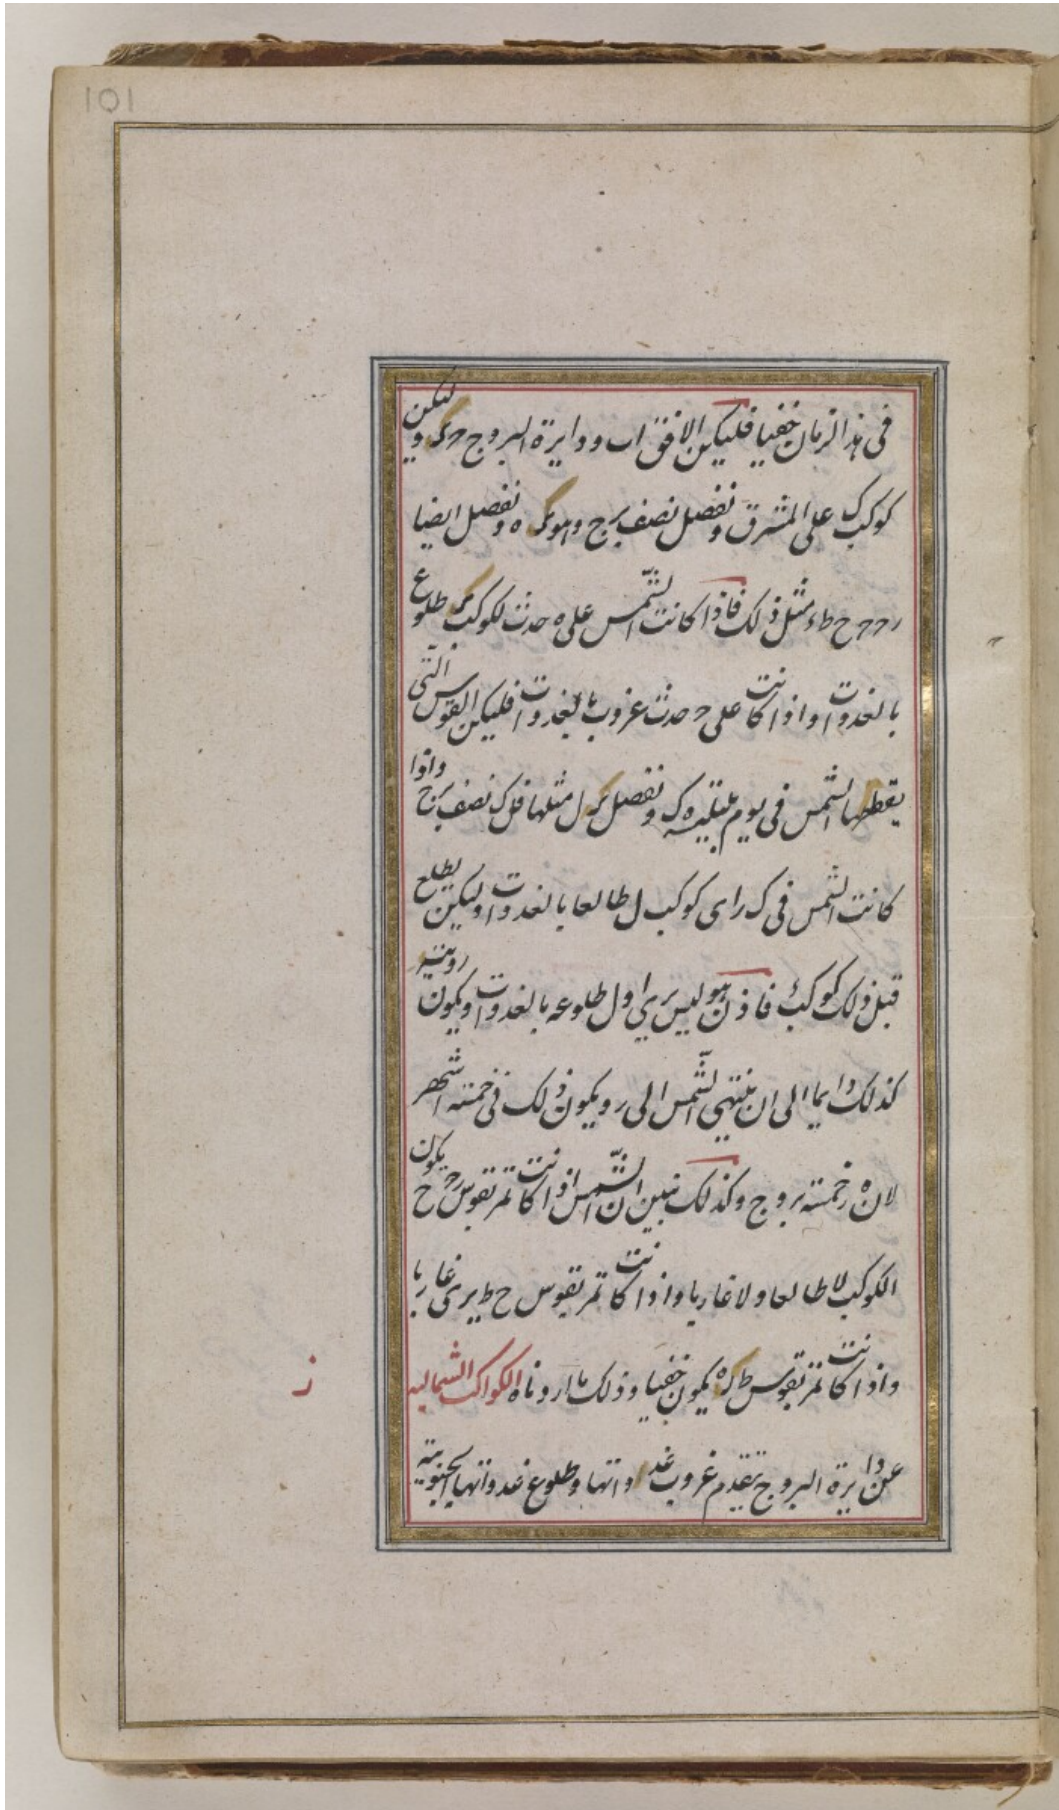 101
فى هذا الزمان خفيا فليكن الافق اب ودايرة البروج حكد وليكن
كوكب ك على المشرق ونفصل نصف برج وهو كه ونفصل ايضا
رح حط مثل ذلك فاذا كانت الشمس على ه حدث لكوكب ك طلوع
بالغدوات واذا كانت على ح حدث غروب بالغدوات فليكن القوس التى
يقطعها الشمس فى يوم بليلته ك ونفصل ل مثلها فلك نصف برج واذا
كانت الشمس فى ك راى كوكب ل طالعا بالغدوات وليكن يطلع
قبل ذلك كوكب ك فاذن هو ليس يرى اول طلوعه بالغدوات ويكون رويته
كذلك دايما الى ان ينتهى الشمس الى ر ويكون ذلك فى خمسة اشهر
لان ه ر خمسة بروج وكذلك نبين ان الشمس اذا كانت تمر بقوس رح يكون
الكوكب لا طالعا ولا غاربا واذا كانت تمر بقوس ح ط يرى غاربا
واذا كانت تمر بقوس ط ك ه يكون خفيا وذلك ما اردناه الكواكب الشمالية
ز
عن دايرة البروج يتقدم غروب غدواتها وطلوع غدواتها الجنوبية